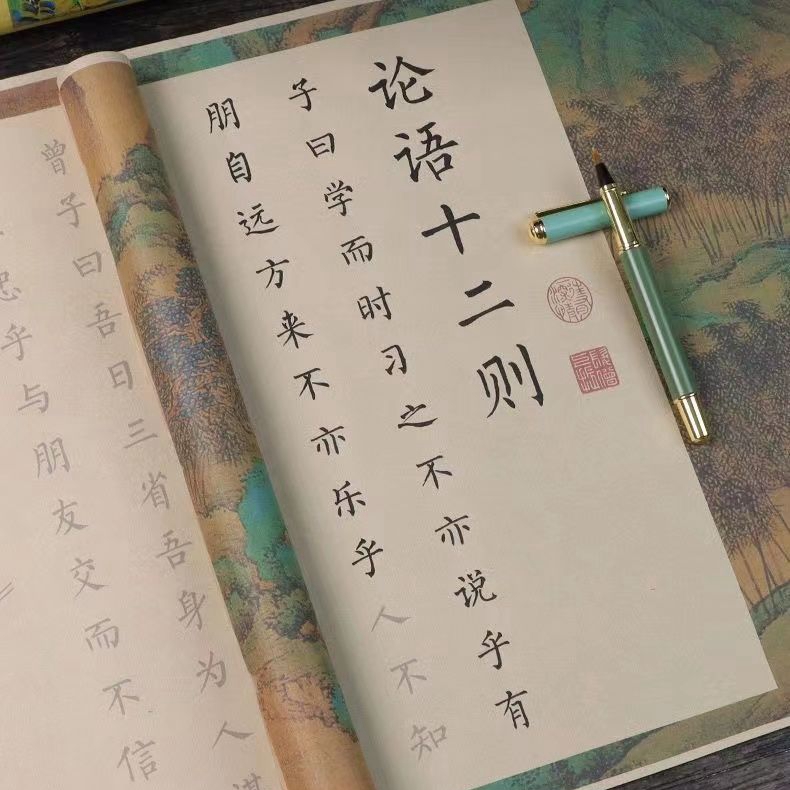 论语十二则
子曰学而时习之不亦说乎有
朋自远方来不亦乐乎人不知
曾子曰吾日三省吾身为人谋
忠乎与朋友交而不信